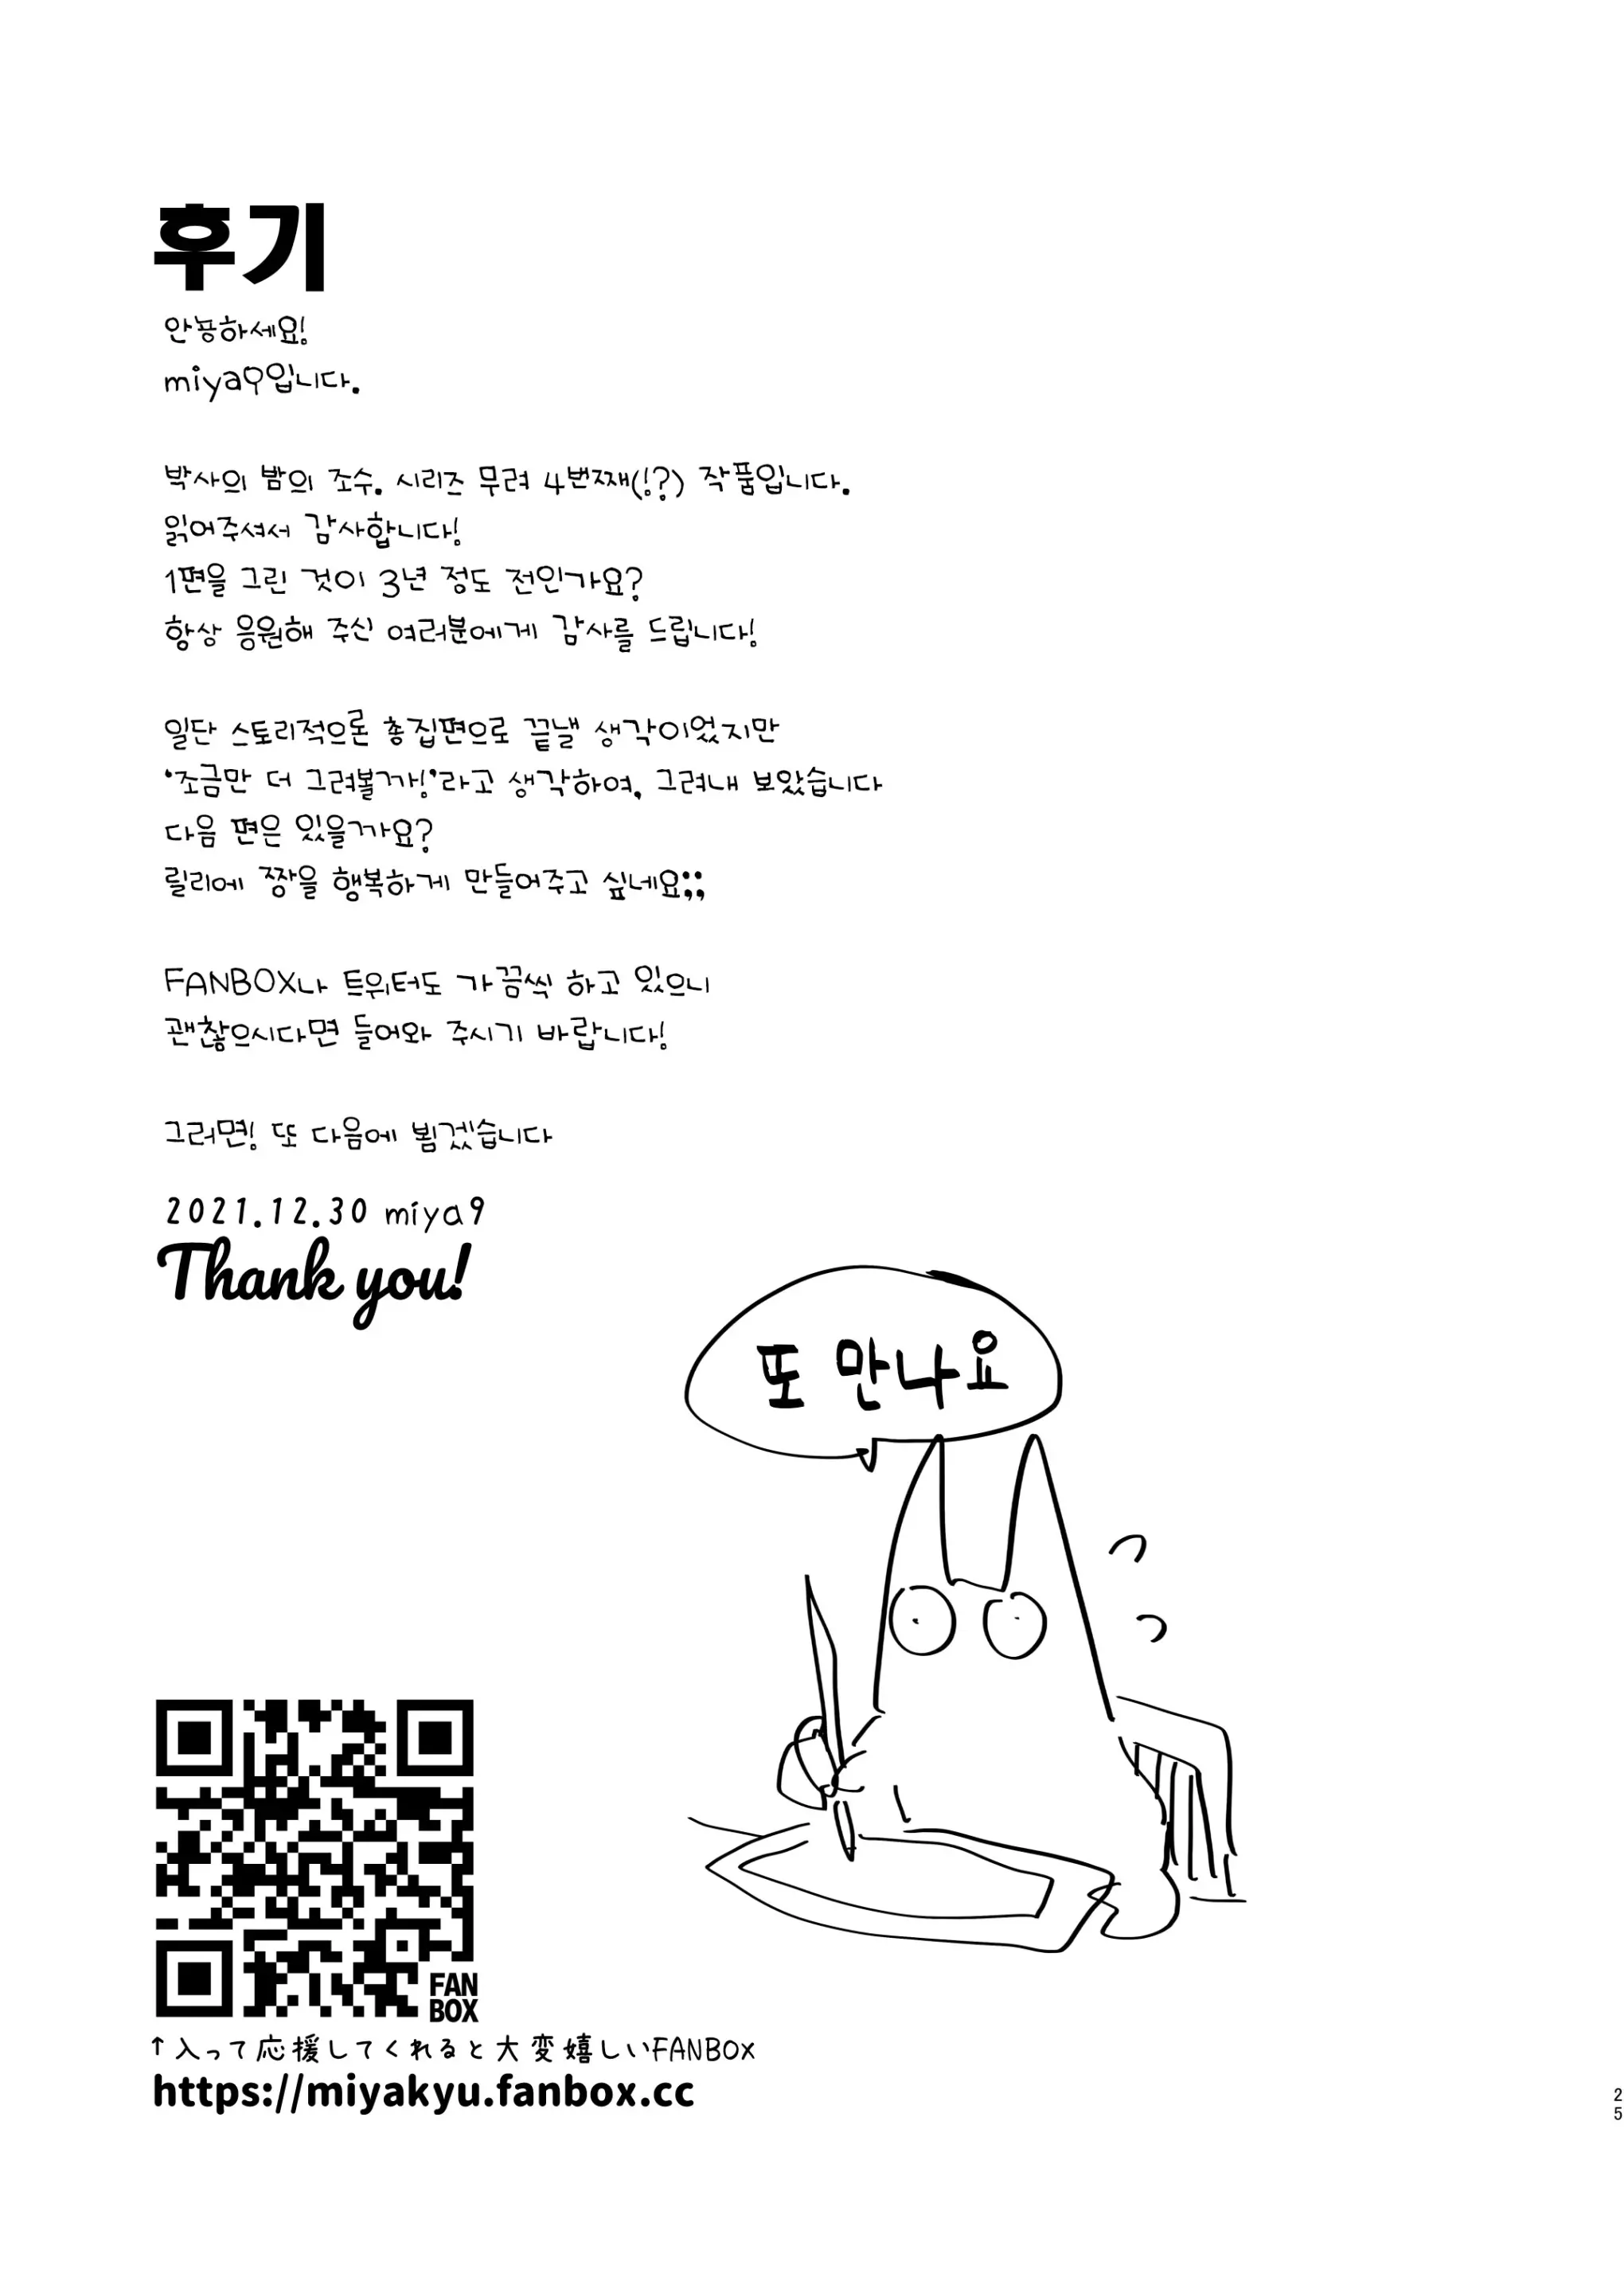 후기
안뇽하세요!
miya9입니다.
박사의 밤의 조수. 시리즈 무려 4번째(!?) 작품입니다.
읽어주셔서 감사합니다!
1편을 그린 것이 3년 정도 전인가요?
항상 응원해 주신 여러분에게 감사를 드립니다!
일단 스토리적으론 총집편으로 끝낼 생각이었지만
'조금만 더 그려볼까!'라고 생각하여, 그려내 보았습니다
다음 편은 있을까요?
릴리에 짱을 행복하게 만들어주고 싶네요;;
FANBOX나 트위터도 가끔씩 하고 있으니
괜찮으시다면 들어와 주시기 바랍니다!
그러면! 또 다음에 뵙겠습니다
2021.12.30 miya9
Thank you!
또 만나요
FAN
BOX
↑入って応援してくれると大変嬉しいFANBOX
https://miyakyu.fanbox.cc
25